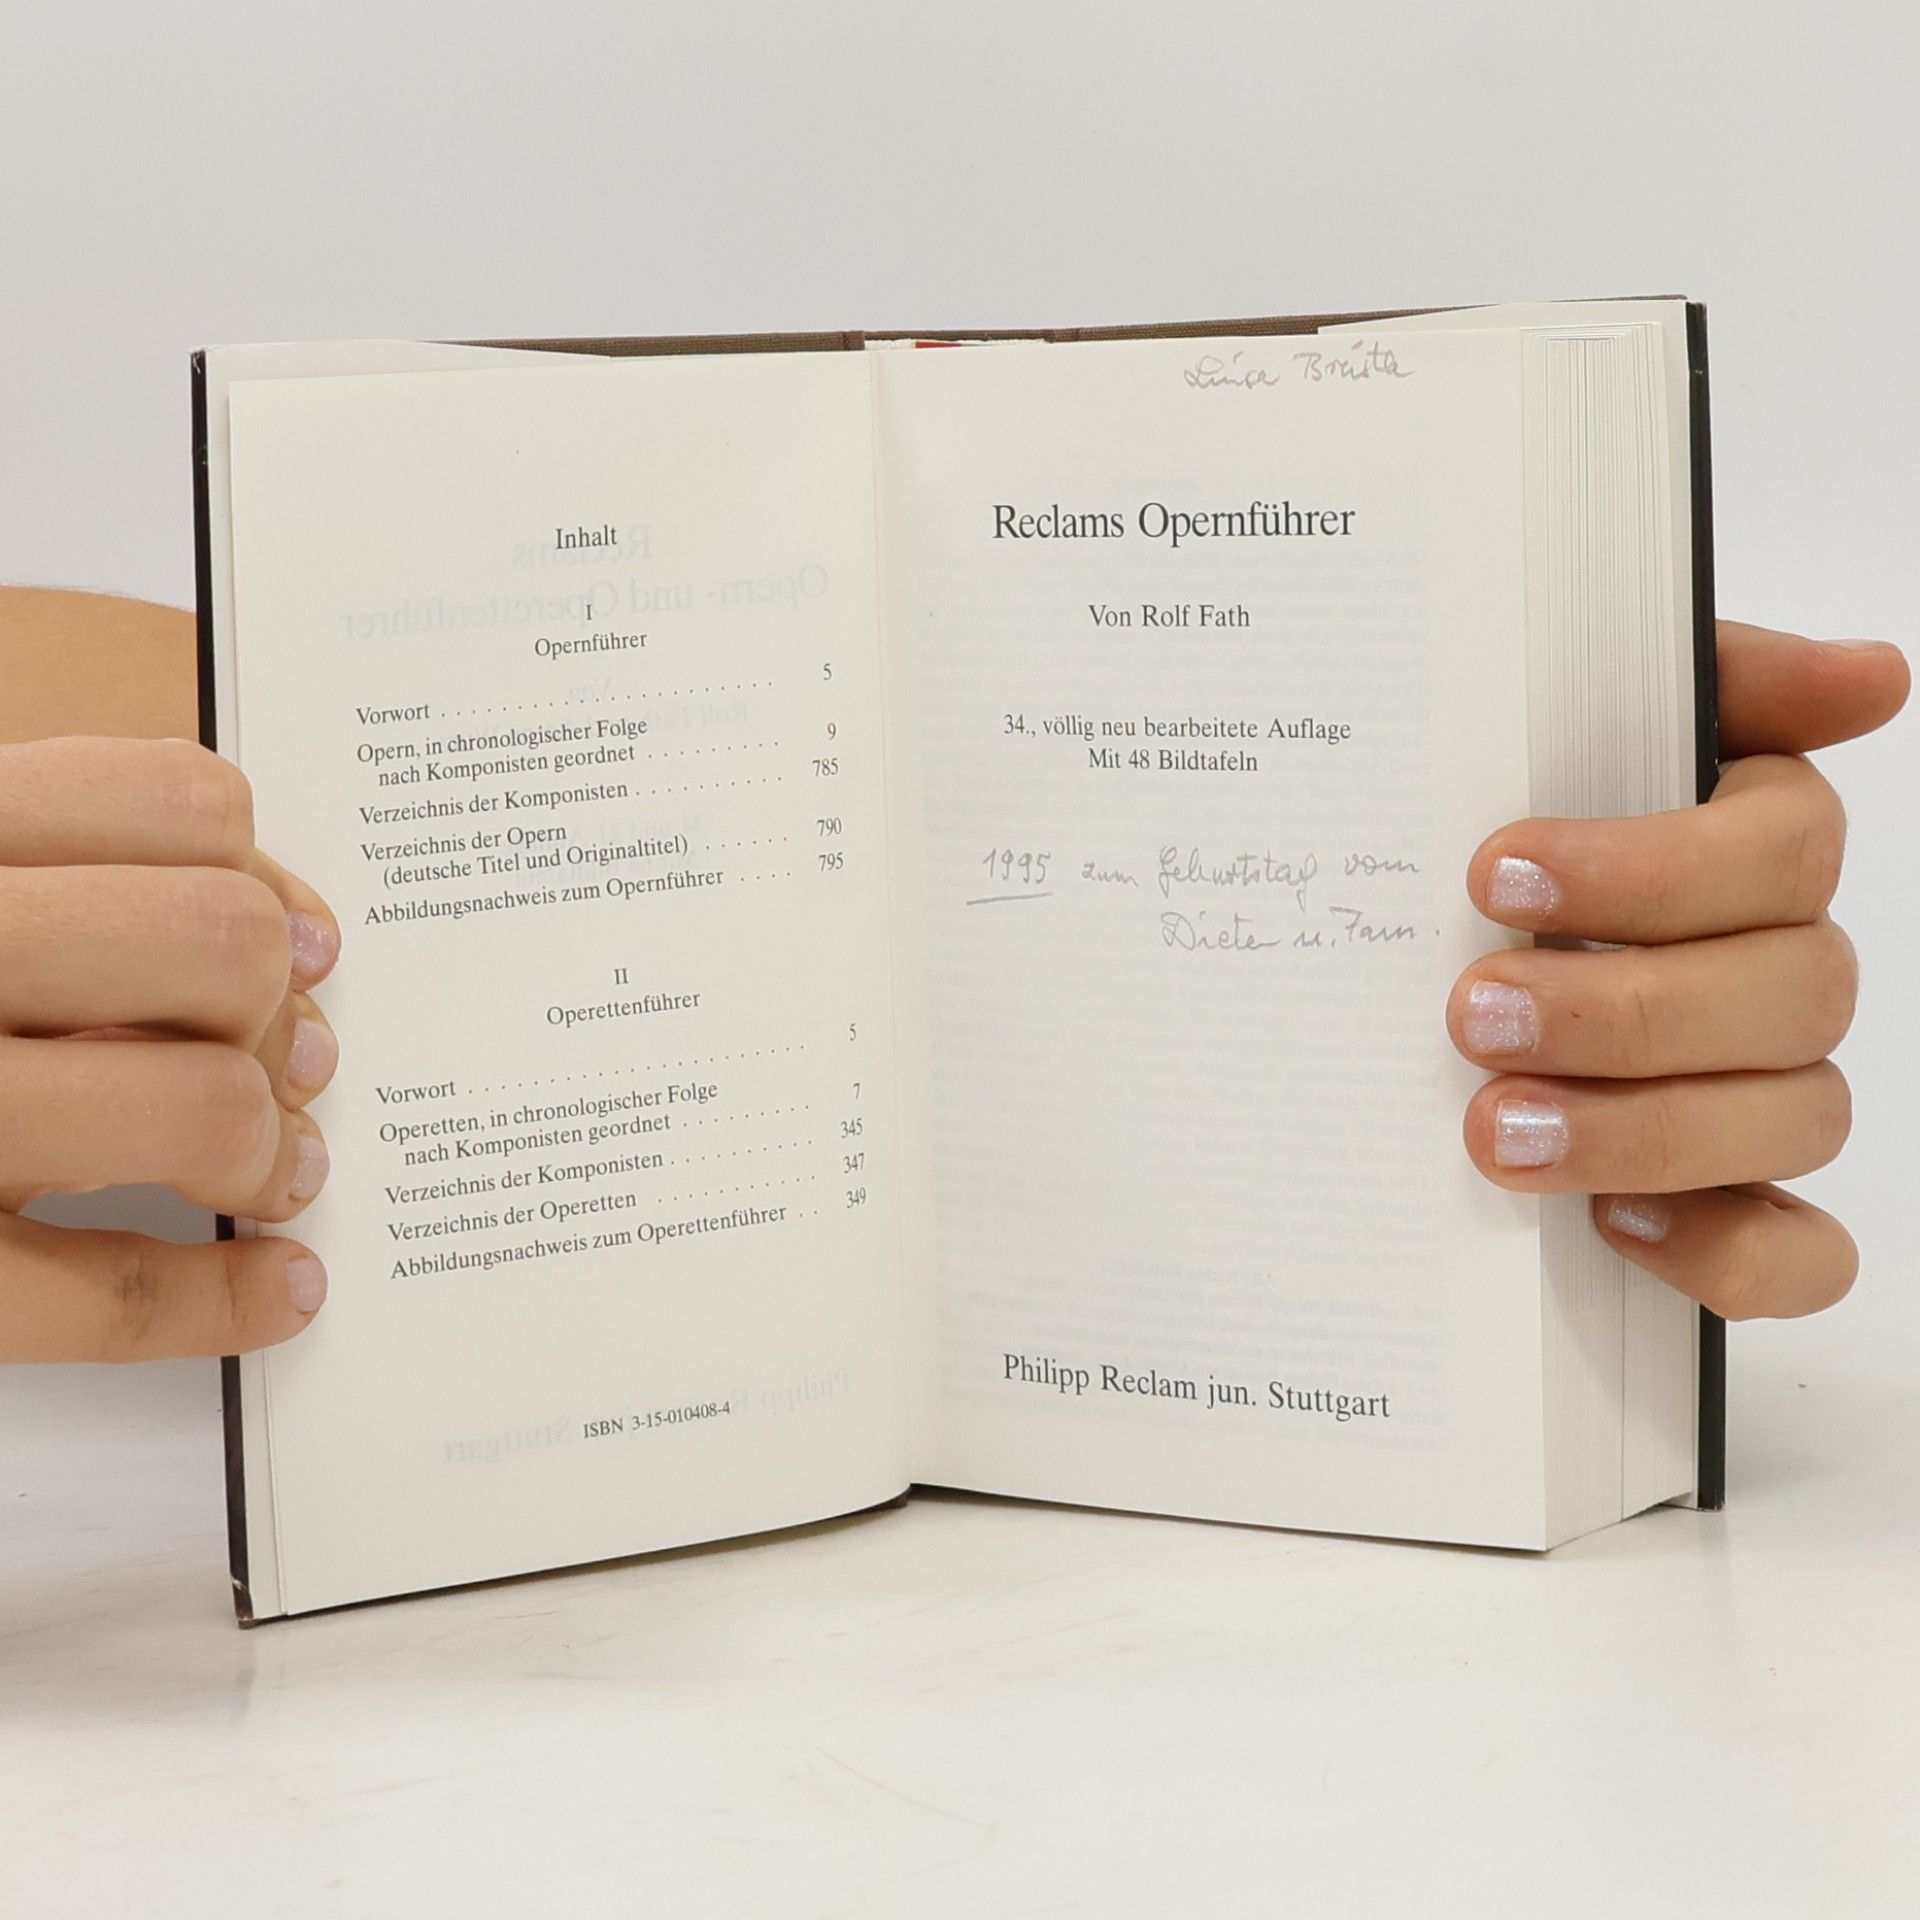 Inhalt
I
Opernführer
Vorwort . . . . . . . . . . . . . . . . . . . . . . . 5
Opern, in chronologischer Folge
nach Komponisten geordnet . . . . . . . . . 9
Verzeichnis der Komponisten . . . . . . . . . . 785
Verzeichnis der Opern
(deutsche Titel und Originaltitel) . . . . . . 790
Abbildungsnachweis zum Opernführer . . . . 795
II
Operettenführer
Vorwort . . . . . . . . . . . . . . . . . . . . . . . 5
Operetten, in chronologischer Folge
nach Komponisten geordnet . . . . . . . . 7
Verzeichnis der Komponisten . . . . . . . . . . 345
Verzeichnis der Operetten . . . . . . . . . . . 347
Abbildungsnachweis zum Operettenführer . . 349
ISBN 3-15-010408-4
Reclams Opernführer
Von Rolf Fath
34., völlig neu bearbeitete Auflage
Mit 48 Bildtafeln
1995 zum Geburtstag vom
Dieter u. Fam.
Philipp Reclam jun. Stuttgart